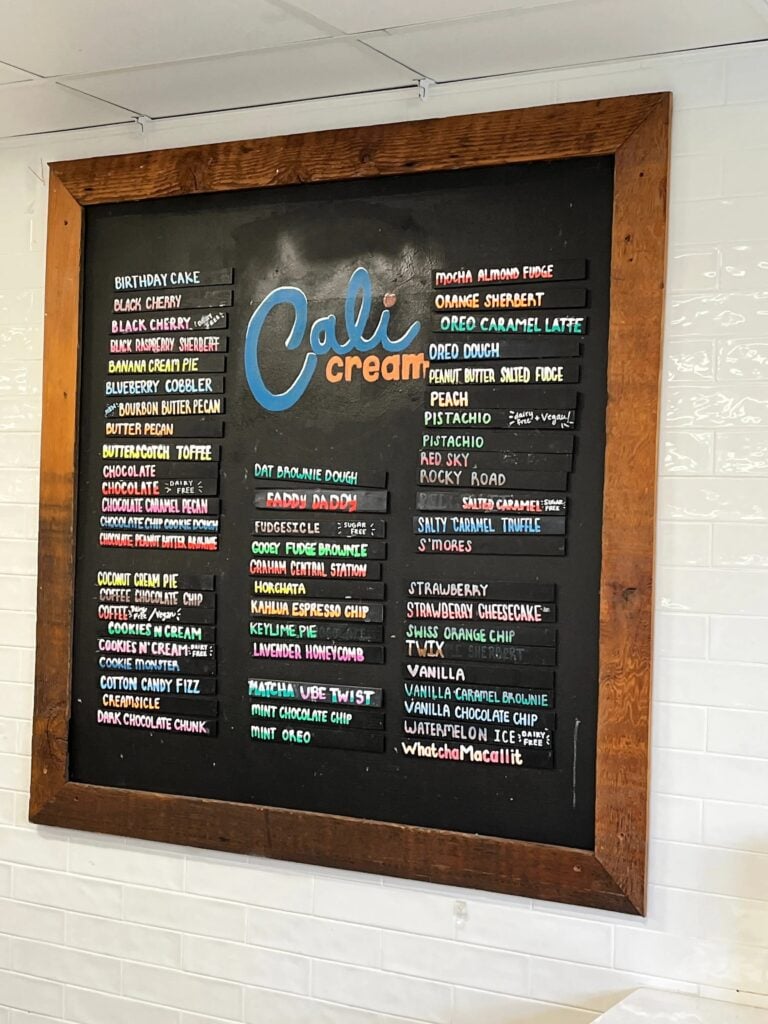 Cali
cream
BIRTHDAY CAKE
BLACK CHERRY
BLACK CHERRY dairy free
BLACK RASPBERRY SHERBERT
BANANA CREAM PIE
BLUEBERRY COBBLER
NEW BOURBON BUTTER PECAN
BUTTER PECAN
BUTTERSCOTCH TOFFEE
CHOCOLATE
CHOCOLATE DAIRY FREE
CHOCOLATE CARAMEL PECAN
CHOCOLATE CHIP COOKIE DOUGH
CHOCOLATE PEANUT BUTTER BROWNIE
COCONUT CREAM PIE
COFFEE CHOCOLATE CHIP
COFFEE Dairy Free/Vegan
COOKIES N CREAM
COOKIES N' CREAM DAIRY FREE
COOKIE MONSTER
COTTON CANDY FIZZ
CREAMSICLE
DARK CHOCOLATE CHUNK
DAT BROWNIE DOUGH
FADDY DADDY
FUDGESICLE SUGAR FREE
GOOEY FUDGE BROWNIE
GRAHAM CENTRAL STATION
HORCHATA
KAHLUA ESPRESSO CHIP
KEYLIME PIE
LAVENDER HONEYCOMB
MATCHA UBE TWIST
MINT CHOCOLATE CHIP
MINT OREO
MOCHA ALMOND FUDGE
ORANGE SHERBERT
OREO CARAMEL LATTE
OREO DOUGH
PEANUT BUTTER SALTED FUDGE
PEACH
PISTACHIO dairy free + Vegan!
PISTACHIO
RED SKY
ROCKY ROAD
SALTED CARAMEL SUGAR FREE
SALTY CARAMEL TRUFFLE
S'MORES
STRAWBERRY
STRAWBERRY CHEESECAKE
SWISS ORANGE CHIP
TWIX SHERBERT
VANILLA
VANILLA CARAMEL BROWNIE
VANILLA CHOCOLATE CHIP
WATERMELON ICE DAIRY FREE
WhatchaMacallit